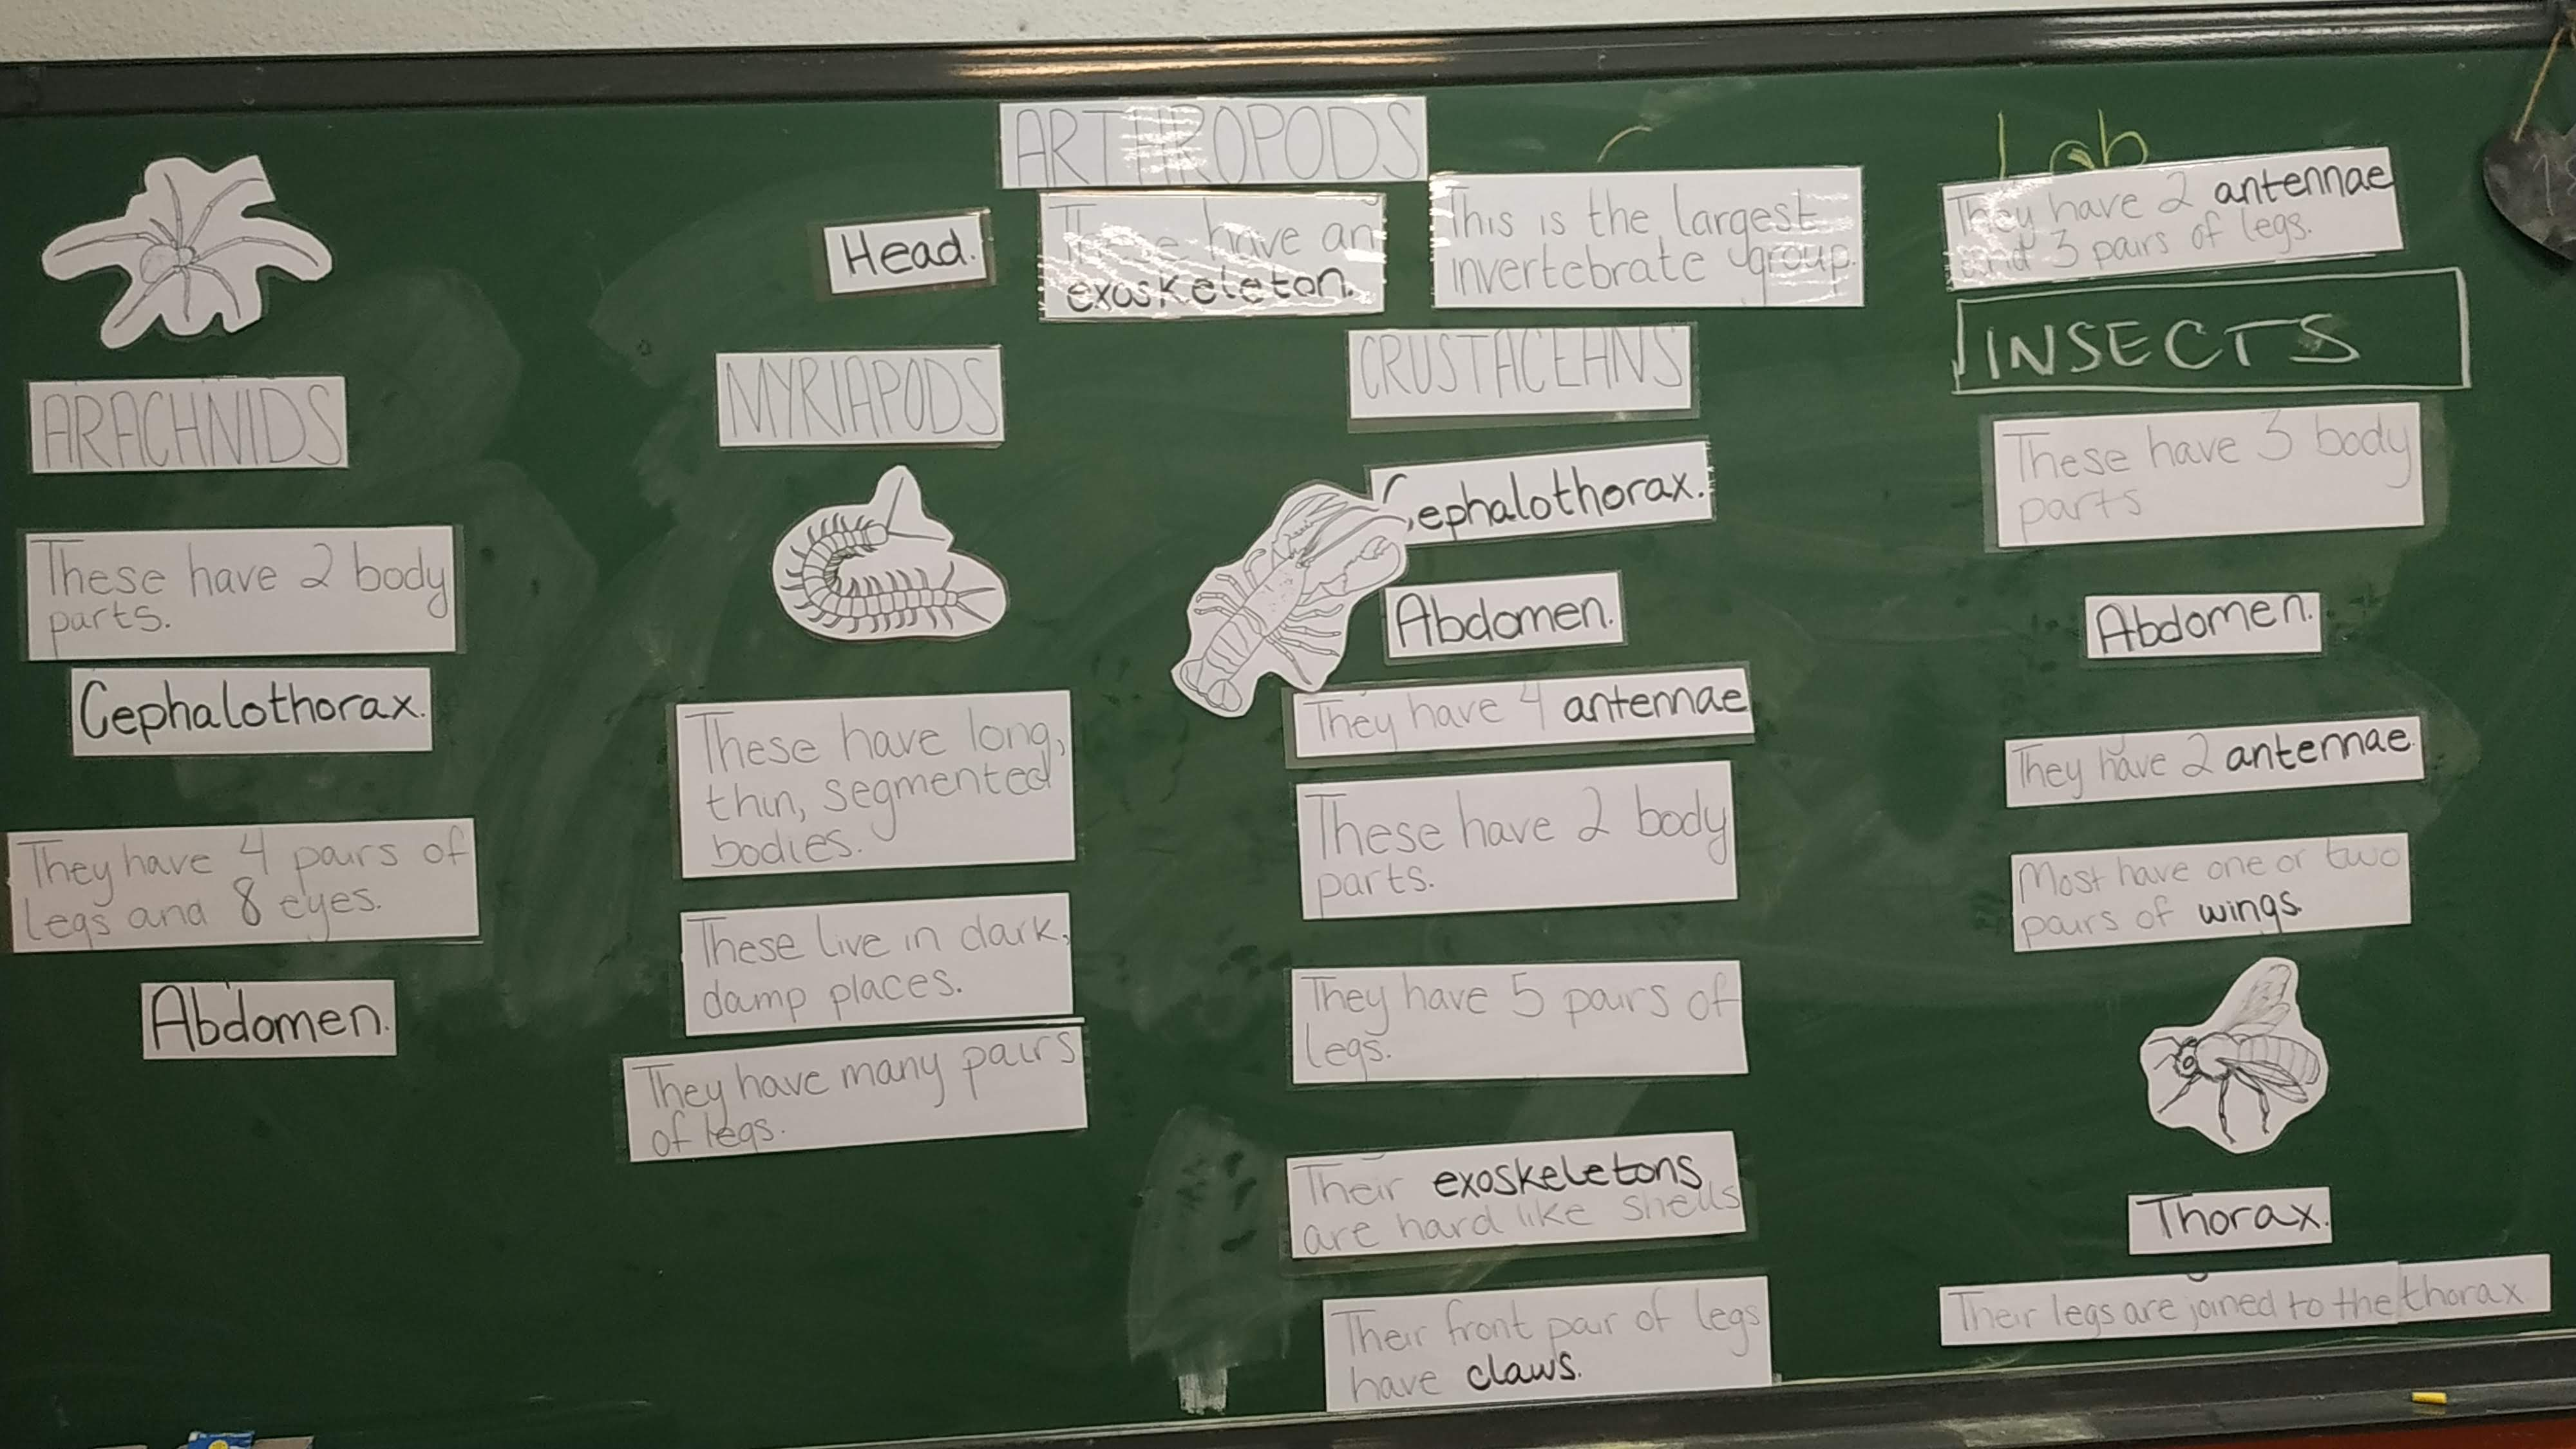 ARTHROPODS
These have an
exoskeleton.
This is the largest
invertebrate group.
Lab
ARACHNIDS
These have 2 body
parts.
Cephalothorax.
They have 4 pairs of
legs and 8 eyes.
Abdomen.
Head.
MYRIAPODS
These have long,
thin, segmented
bodies.
These live in dark,
damp places.
They have many pairs
of legs.
CRUSTACEANS
Cephalothorax.
Abdomen.
They have 4 antennae
These have 2 body
parts.
They have 5 pairs of
legs.
Their exoskeletons
are hard like shells
Their front pair of legs
have claws.
They have 2 antennae
and 3 pairs of legs.
INSECTS
These have 3 body
parts
Abdomen.
They have 2 antennae.
Most have one or two
pairs of wings.
Thorax.
Their legs are joined to the thorax